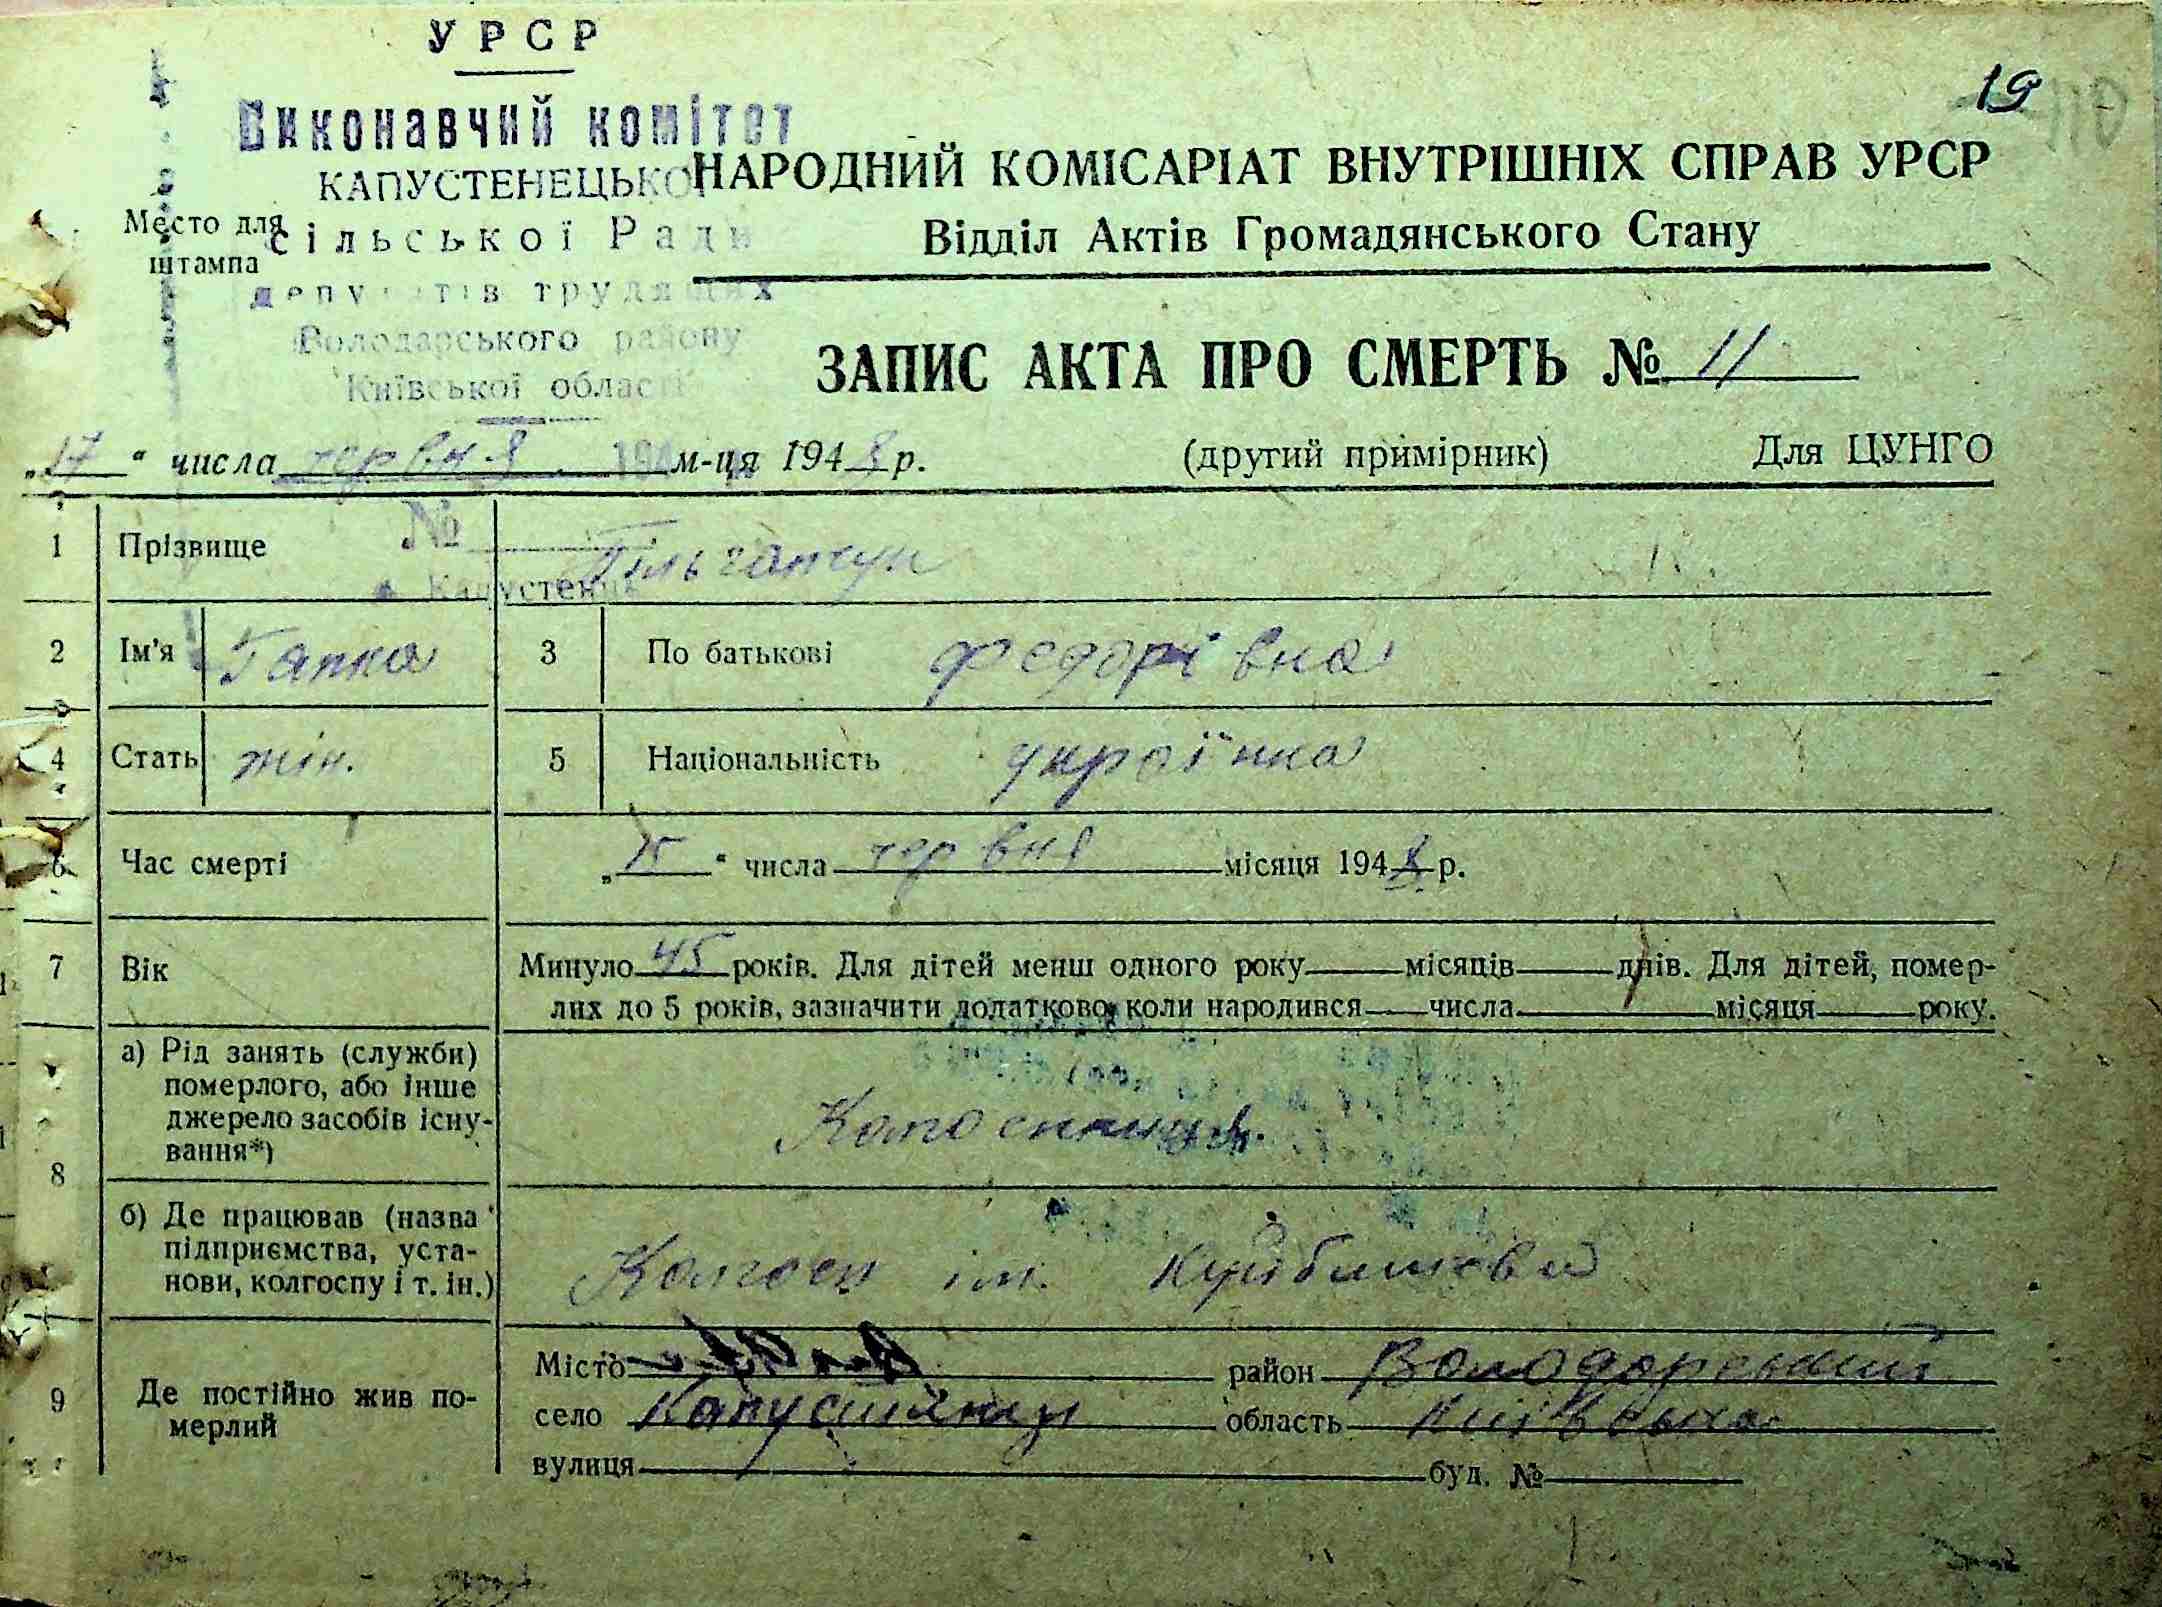 УРСР
19
Виконавчий комітет
КАПУСТЕНЕЦЬКОЇ
НАРОДНИЙ КОМІСАРІАТ ВНУТРІШНІХ СПРАВ УРСР
Место для штампа
сільської Ради
Відділ Актів Громадянського Стану
депутатів трудящих
Володарського району
Київської області
ЗАПИС АКТА ПРО СМЕРТЬ № 11
„17“ числа червня м-ця 1948 р. (другий примірник) Для ЦУНГО
№
1 Прізвище
Капустенці
2 Ім'я Гапка 3 По батькові Федорівна
4 Стать жін. 5 Національність українка
6 Час смерті „15“ числа червня місяця 1948 р.
7 Вік Минуло 45 років. Для дітей менш одного року місяців днів. Для дітей, помер-
лих до 5 років, зазначити додатково, коли народився числа місяця року.
8
а) Рід занять (служби)
померлого, або інше
джерело засобів існу-
вання*)
б) Де працював (назва
підприємства, уста-
нови, колгоспу і т. ін.)
Колгосп ім. Куйбишева
9 Де постійно жив по-
мерлий
Місто район Володарський
село Капустянци область Київська
вулиця буд. №